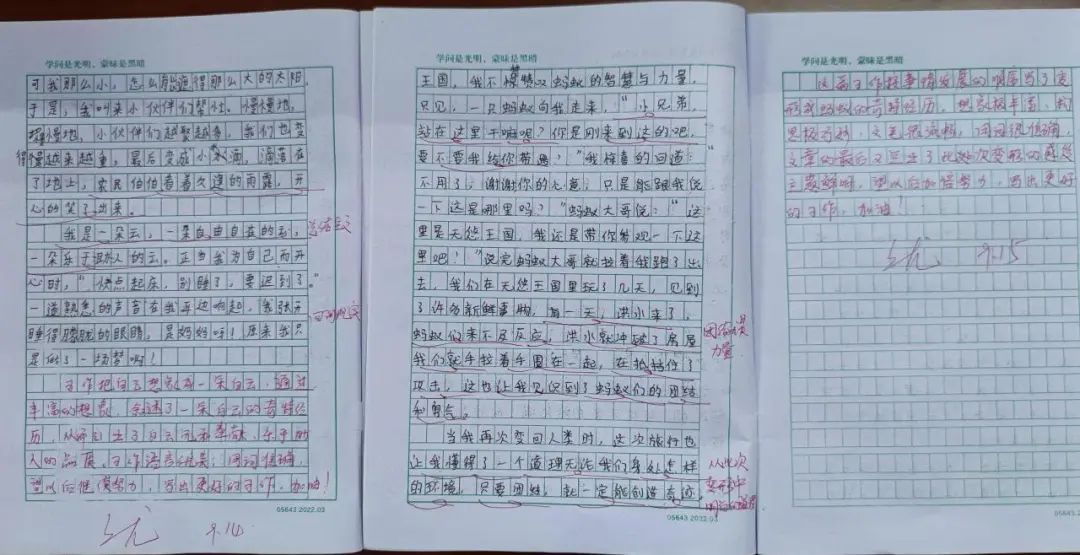 学问是光明，蒙昧是黑暗
可我那么小，怎么能遮得那么大的太阳，
于是，我叫来小伙伴们帮忙。慢慢地，
慢慢地，小伙伴们越聚越多，我们也变
得越来越重，最后变成小水滴，滴落在
了地上，农民伯伯看着久违的雨露，开
心的笑了出来。
我是一朵云，一朵自由自在的云，
一朵乐于助人的云。正当我为自己而开
心时，“快点起床，别睡了，要迟到了。”
一道熟悉的声音在我耳边响起，我张开
睡得朦胧的眼睛，是妈妈呀！原来我只
是做了一场梦啊！
总结全文
习作把自己想象成一朵白云，通过
丰富的想象，叙述了一朵白云的奇特经
历，从而写出了白云无私奉献、乐于助
人的品质。习作语言优美，用词准确，
望以后继续努力，写出更好的习作。加油！
优 9.14
05643 2022.03
学问是光明，蒙昧是黑暗
王国，我不惊叹蚂蚁的智慧与力量，
只见，一只蚂蚁向我走来，“小兄弟，
站在这里干嘛呢？你是刚来到这的吧，
要不要我给你带路？”我惊喜的回道：
不用了，谢谢你的心意，只是能跟我说
一下这是哪里吗？”蚂蚁大哥说：“这
里是天悠王国，我还是带你参观一下这
里吧！”说完蚂蚁大哥就拉着我跑了出
去，我们在天悠王国里玩了几天，见到
了许多新鲜事物，有一天，洪水来了，
蚂蚁们来不及反应，洪水就冲破了房屋
我们就手拉着手围在一起，在抵挡住了
攻击，这也让我见识到了蚂蚁们的团结
和勇气。
当我再次变回人类时，这次旅行也
让我懂得了一个道理无论我们身处怎样
的环境，只要团结，就一定能创造奇迹。
力量
从此次
变形中
明白的道理
05643 2022.03
学问是光明，蒙昧是黑暗
这篇习作按事情发展的顺序写了变
形成蚂蚁的奇特经历，想象极丰富，构
思极巧妙，文笔很流畅，用词很准确，
文章的最后又写出了此次变形的感悟
主题鲜明，望以后加倍努力，写出更好
的习作，加油！
优 9.15